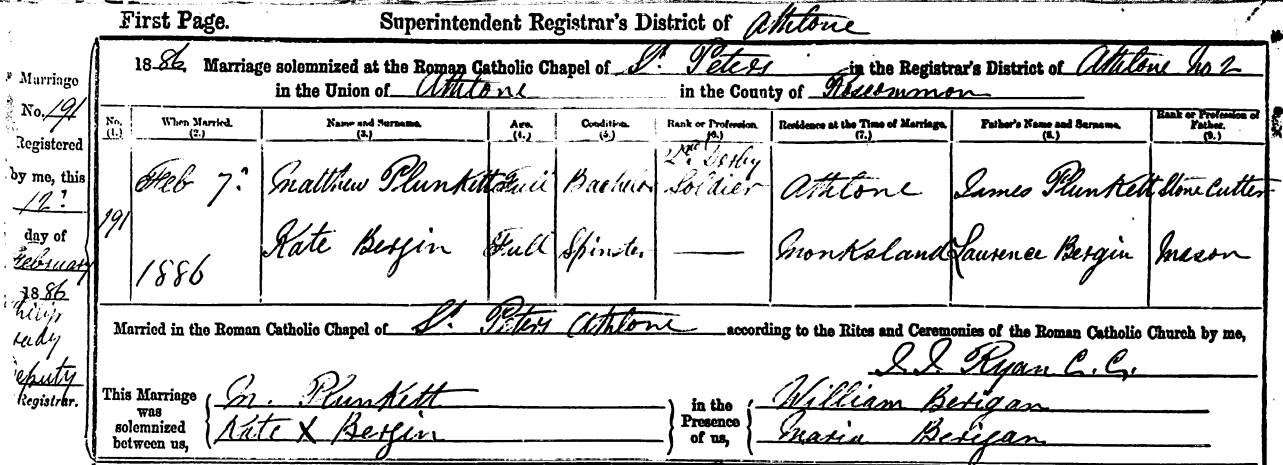 First Page. Superintendent Registrar's District of Athlone
1886. Marriage solemnized at the Roman Catholic Chapel of St. Peters in the Registrar's District of Athlone No 2
in the Union of Athlone in the County of Roscommon
Marriage
No. 191
Registered
by me, this
12th
day of
February
1886
Deputy
Registrar.
No. (1.) When Married. (2.) Name and Surname. (3.) Age. (4.) Condition. (5.) Rank or Profession. (6.) Residence at the Time of Marriage. (7.) Father's Name and Surname. (8.) Rank or Profession of Father. (9.)
191 Feb 7th 1886
Matthew Plunkett Full Bachelor 2nd Derby Soldier Athlone James Plunkett Stone Cutter
Kate Bergin Full Spinster — Monksland Laurence Bergin Mason
Married in the Roman Catholic Chapel of St. Peters Athlone according to the Rites and Ceremonies of the Roman Catholic Church by me,
Ryan C.C.
This Marriage was solemnized between us,
M. Plunkett
Kate X Bergin
in the Presence of us,
William Berigan
Maria Berigan